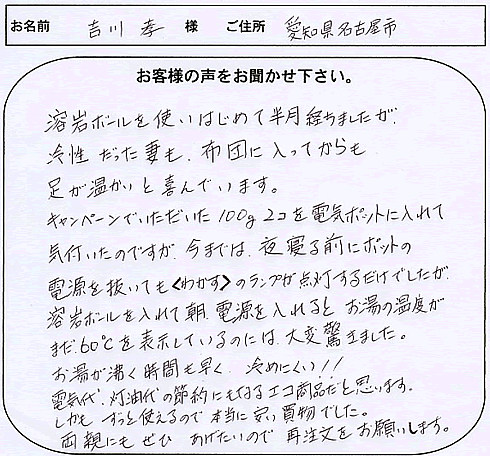 お名前 吉川 孝 様 ご住所 愛知県名古屋市
お客様の声をお聞かせ下さい。
溶岩ボールを使いはじめて半月経ちましたが、
冷性だった妻も、布団に入ってからも
足が温かいと喜んでいます。
キャンペーンでいただいた100g 2コを電気ポットに入れて
気付いたのですが、今までは、夜寝る前にポットの
電源を抜いても<わかす>のランプが点灯するだけでしたが、
溶岩ボールを入れて朝、電源を入れると お湯の温度が
まだ60℃を表示しているのには、大変驚きました。
お湯が沸く時間も早く、冷めにくい!!
電気代、灯油代の節約にもなるエコ商品だと思います。
しかも ずっと使えるので本当に安い買物でした。
両親にも ぜひ あげたいので 再注文をお願いします。